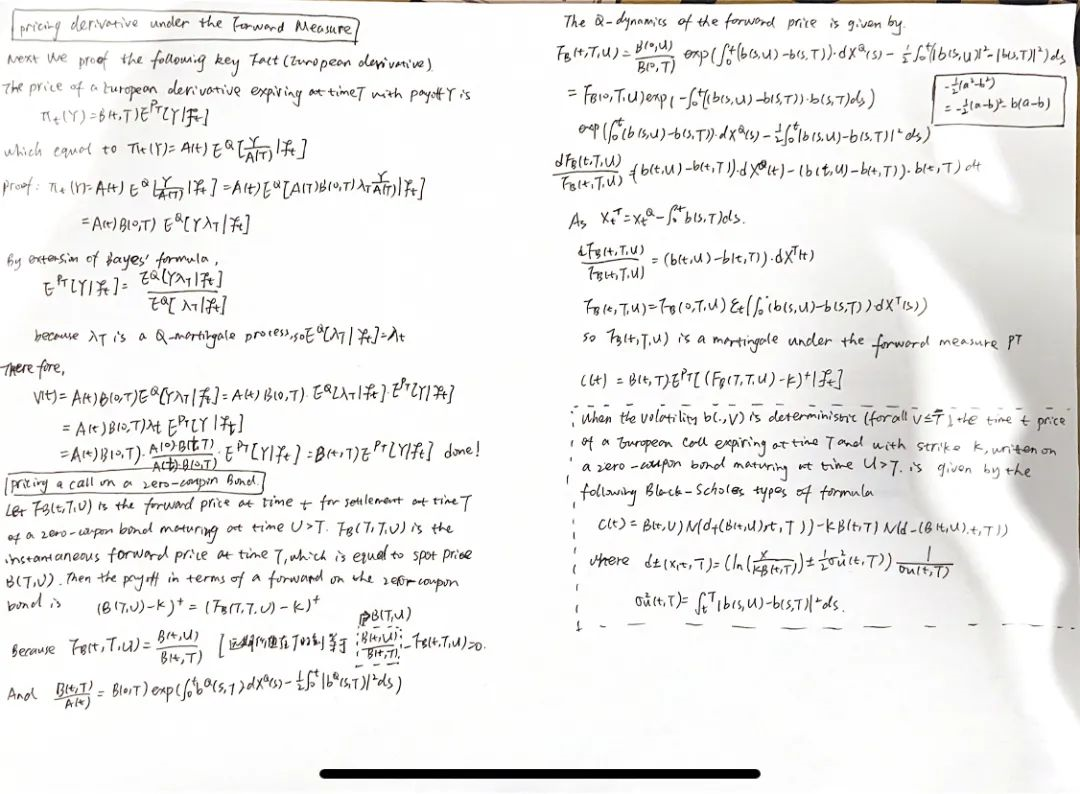 pricing derivative under the Forward Measure
Next We proof the following key Fact (European derivative)
The price of a European derivative expiring at time T with payoff Y is
π_t(Y) = B(t,T) E^{P_T}[Y|F_t]
which equal to π_t(Y) = A(t) E^Q[Y/A(T)|F_t]
proof: π_t(Y) = A(t) E^Q[Y/A(T)|F_t] = A(t) E^Q[A(T)B(0,T) λ_T Y/A(T)|F_t]
= A(t) B(0,T) E^Q[Yλ_T|F_t]
By extension of Bayes' formula,
E^{P_T}[Y|F_t] = E^Q[Yλ_T|F_t] / E^Q[λ_T|F_t]
because λ_T is a Q-martingale process, so E^Q[λ_T|F_t] = λ_t
Therefore,
V(t) = A(t) B(0,T) E^Q[Yλ_T|F_t] = A(t) B(0,T) · E^Q[λ_T|F_t] · E^{P_T}[Y|F_t]
= A(t) B(0,T) λ_t E^{P_T}[Y|F_t]
= A(t) B(0,T) · A(0)·B(t,T) / A(t)·B(0,T) · E^{P_T}[Y|F_t] = B(t,T) E^{P_T}[Y|F_t] done!
pricing a call on a zero-coupon Bond.
Let F_B(t,T,U) is the forward price at time t for settlement at time T
of a zero-coupon bond maturing at time U>T. F_B(T,T,U) is the
instantaneous forward price at time T, which is equal to spot price
B(T,U). Then the payoff in terms of a forward on the zero-coupon
bond is (B(T,U)-K)^+ = (F_B(T,T,U)-K)^+
即B(T,U)
Because F_B(t,T,U) = B(t,U)/B(t,T) [ 在T时刻 等于 B(t,U)/B(t,T) - F_B(t,T,U)=0.
And B(t,T)/A(t) = B(0,T) exp(∫_0^t b^Q(s,T) dX^Q(s) - 1/2 ∫_0^t |b^Q(s,T)|^2 ds)
The Q-dynamics of the forward price is given by.
F_B(t,T,U) = B(0,U)/B(0,T) exp(∫_0^t (b(s,U)-b(s,T))·dX^Q(s) - 1/2 ∫_0^t (|b(s,U)|^2 - |b(s,T)|^2) ds
-1/2(a^2-b^2)
= -1/2(a-b)^2 - b(a-b)
= F_B(0,T,U) exp(-∫_0^t (b(s,U)-b(s,T))·b(s,T) ds)
exp(∫_0^t (b(s,U)-b(s,T))·dX^Q(s) - 1/2 ∫_0^t |b(s,U)-b(s,T)|^2 ds)
dF_B(t,T,U)/F_B(t,T,U) = (b(t,U)-b(t,T))·dX^Q(t) - (b(t,U)-b(t,T))·b(t,T) dt
As X_t^T = X_t^Q - ∫_0^t b(s,T) ds.
dF_B(t,T,U)/F_B(t,T,U) = (b(t,U)-b(t,T))·dX^T(t)
F_B(t,T,U) = F_B(0,T,U) ε_t(∫_0^· (b(s,U)-b(s,T))·dX^T(s))
so F_B(t,T,U) is a martingale under the forward measure P_T
C(t) = B(t,T) E^{P_T}[(F_B(T,T,U)-K)^+|F_t]
When the volatility b(.,V) is deterministic (for all V≤T) the time t price
of a European call expiring at time T and with strike K, written on
a zero-coupon bond maturing at time U>T. is given by the
following Black-Scholes types of formula
C(t) = B(t,U) N(d_+(B(t,U),t,T)) - KB(t,T) N(d_-(B(t,U),t,T))
where d_±(x,t,T) = (ln(x/KB(t,T)) ± 1/2 σ_U^2(t,T)) 1/σ_U(t,T)
σ_U^2(t,T) = ∫_t^T |b(s,U)-b(s,T)|^2 ds.